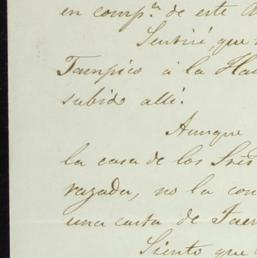 en compª. de este
Sentiré, que
Tampico á la Ha
subido alli.
Aunque
la casa de los Sres
razada, no la con
una carta de Tam
Siento que